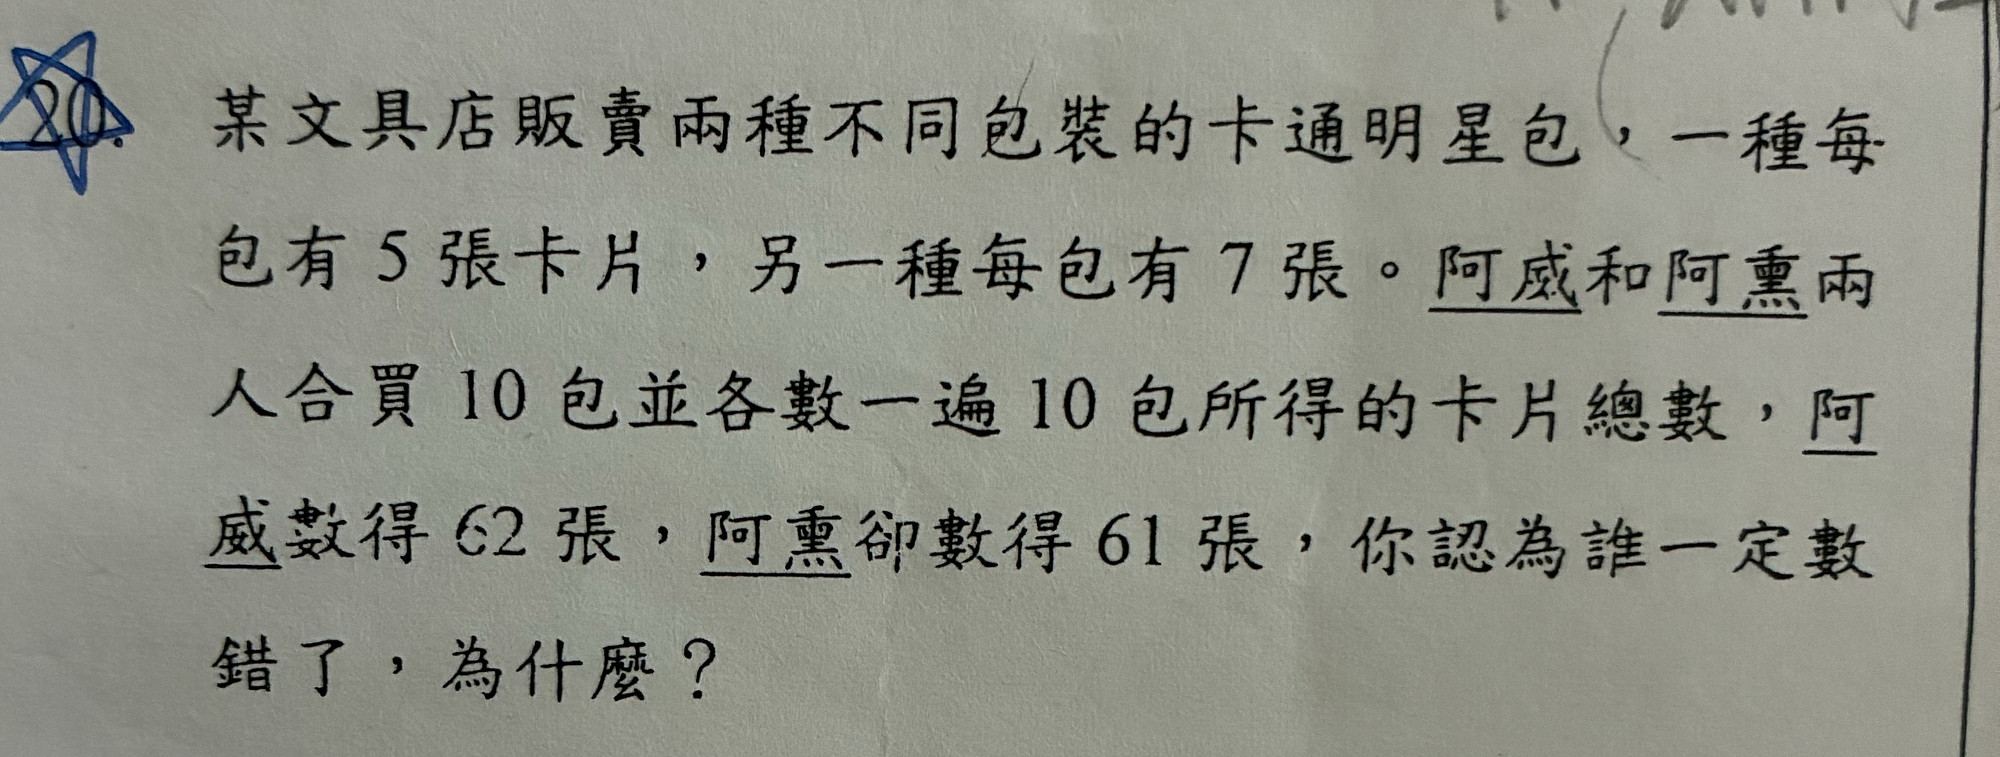 20. 某文具店販賣兩種不同包裝的卡通明星包，一種每
包有 5 張卡片，另一種每包有 7 張。阿威和阿熏兩
人合買 10 包並各數一遍 10 包所得的卡片總數，阿
威數得 62 張，阿熏卻數得 61 張，你認為誰一定數
錯了，為什麼？